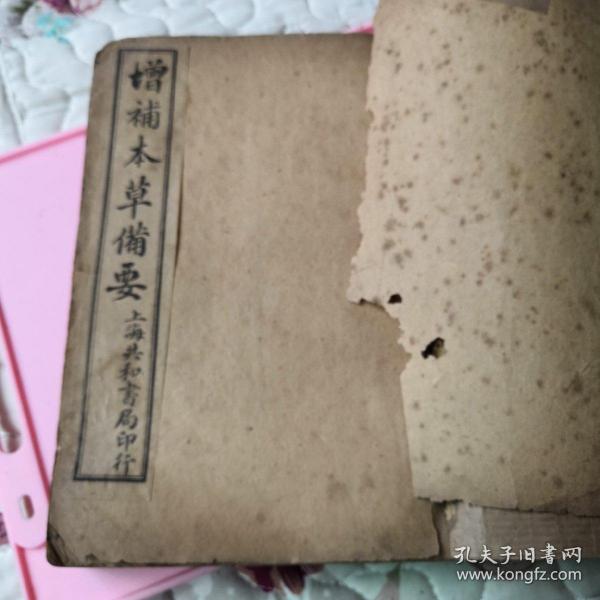 增補本草備要
上海共和書局印行
孔夫子旧書网
www.kongfz.com